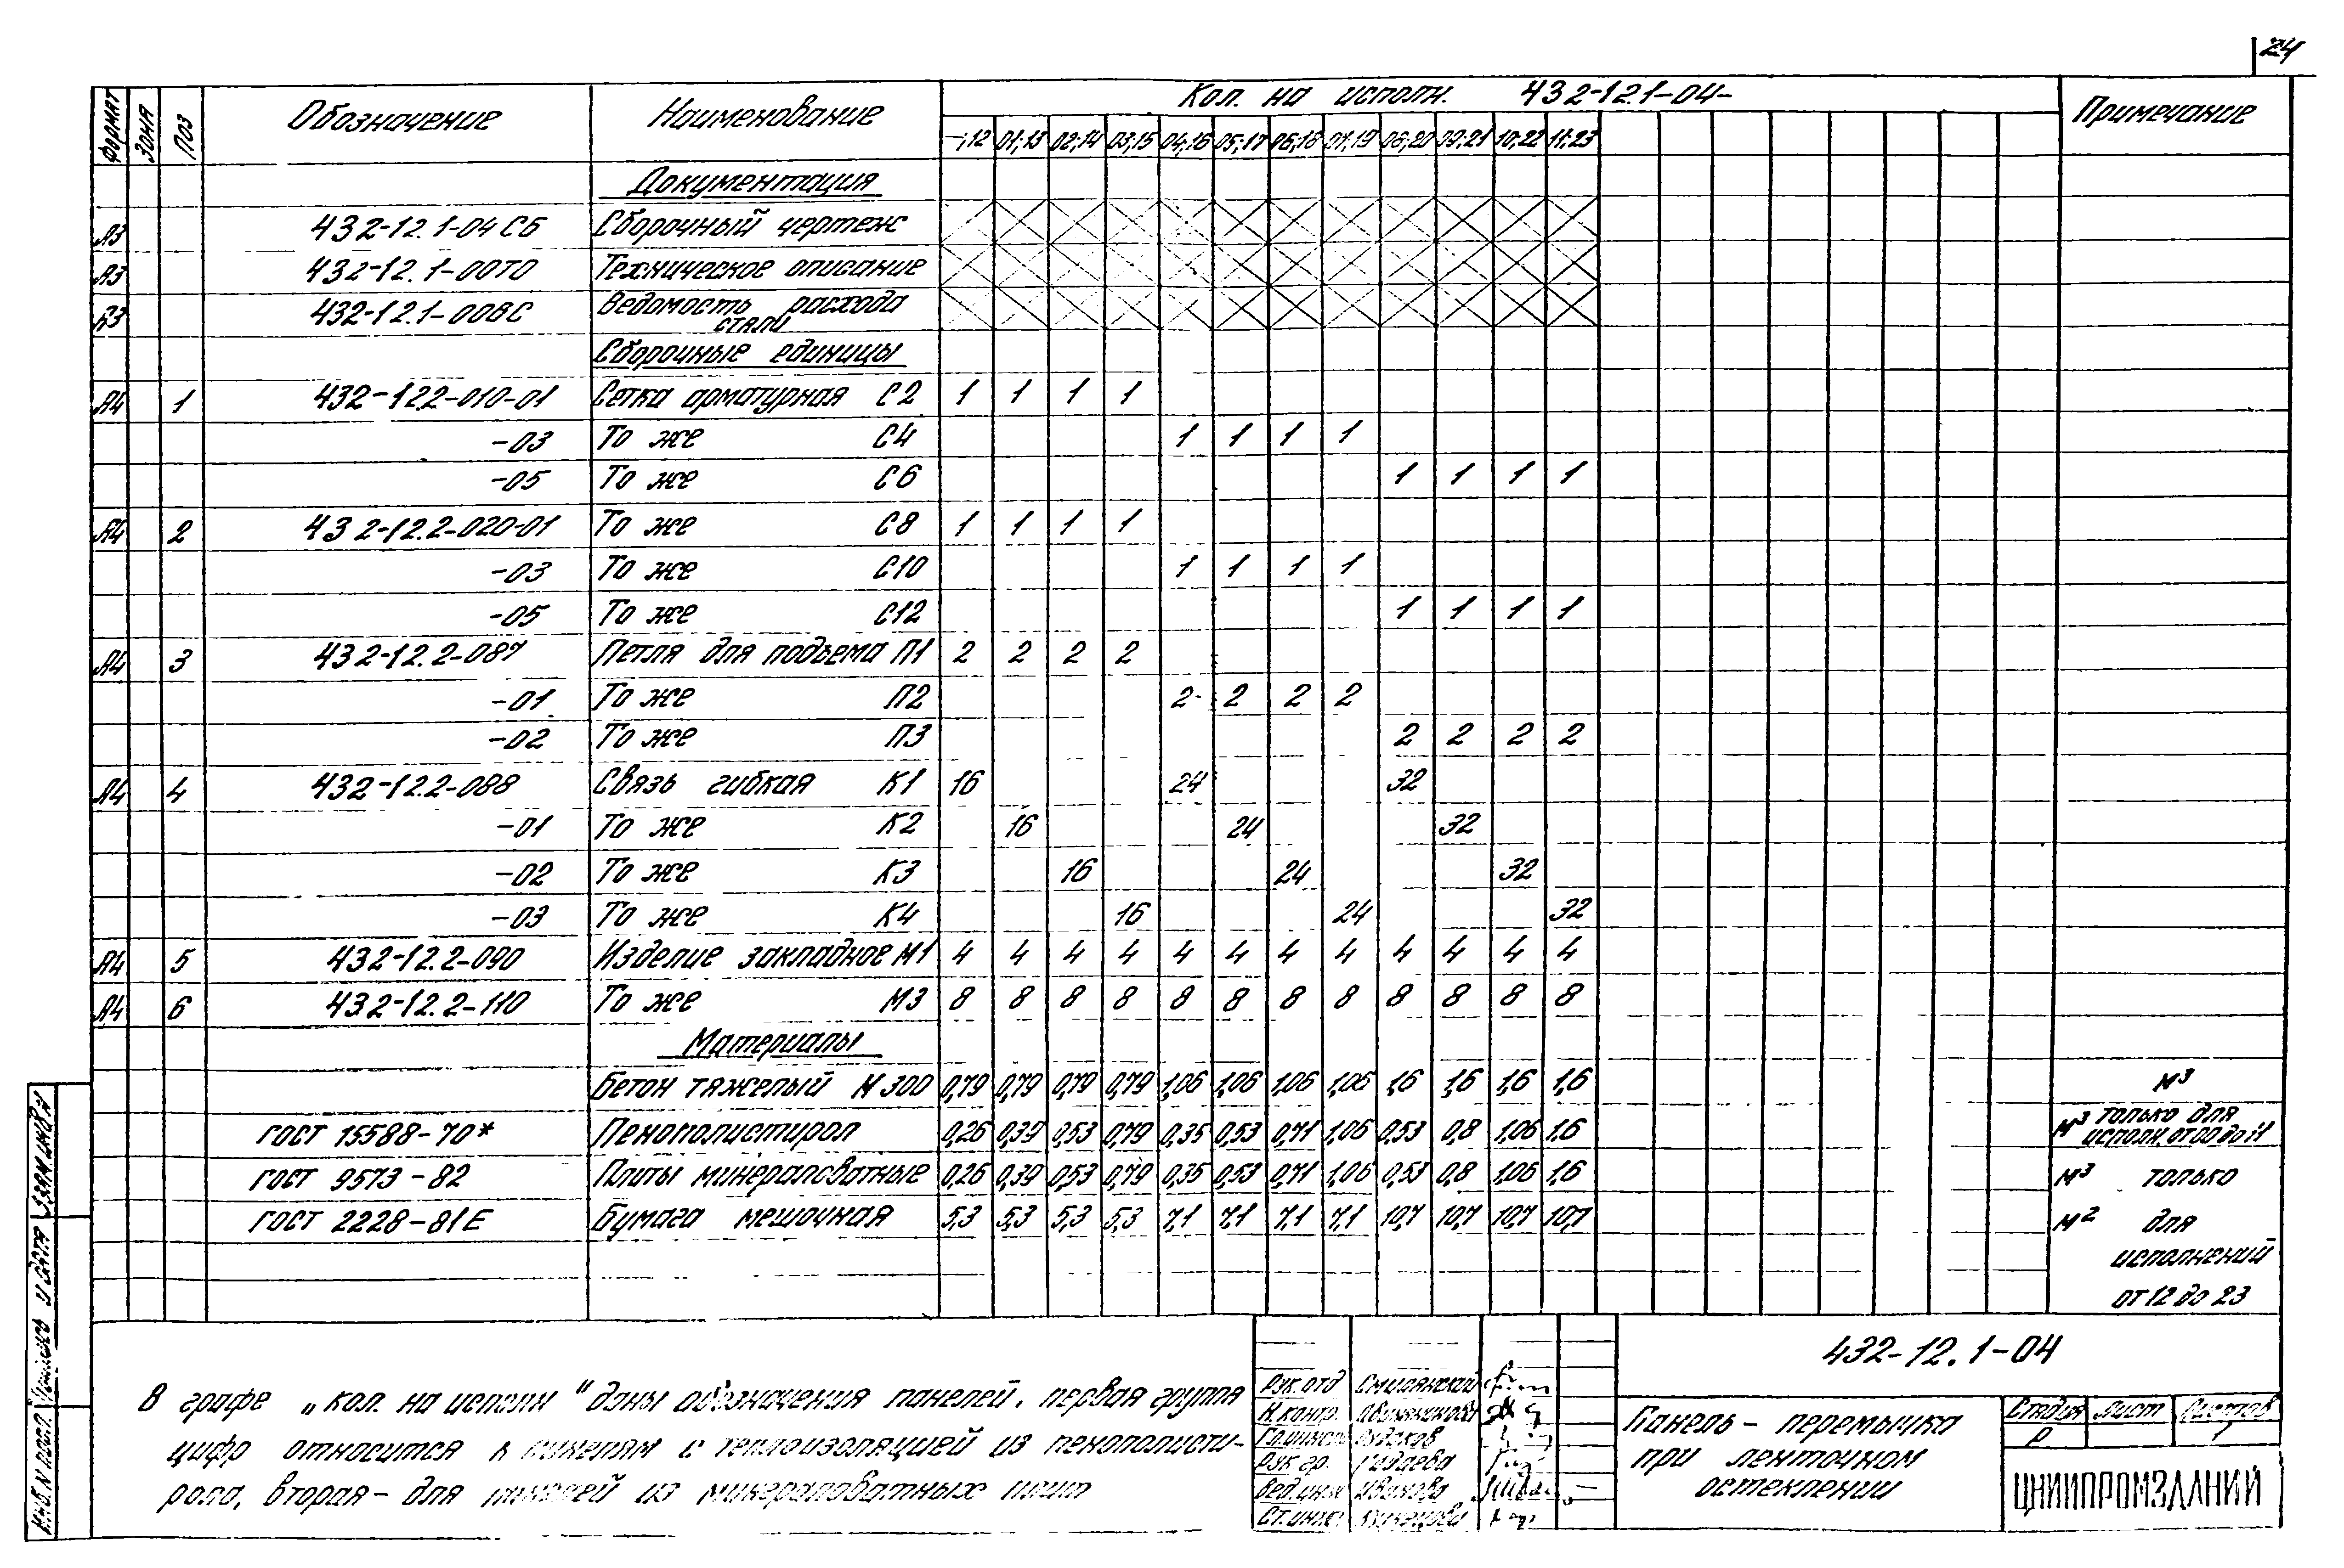 24
ФОРМАТ ЗОНА ПОЗ Обозначение Наименование Кол. на исполн. 432-12.1-04- Примечание
-;12 01;13 02;14 03;15 04;16 05;17 06;18 07;19 08;20 09;21 10;22 11;23
Документация
А3 432-12.1-04 СБ Сборочный чертеж
А3 432-12.1-00ТО Техническое описание
А3 432-12.1-00ВС Ведомость расхода
стали
Сборочные единицы
А4 1 432-12.2-010-01 Сетка арматурная С2 1 1 1 1
-03 То же С4 1 1 1 1
-05 То же С6 1 1 1 1
А4 2 432-12.2-020-01 То же С8 1 1 1 1
-03 То же С10 1 1 1 1
-05 То же С12 1 1 1 1
А4 3 432-12.2-087 Петля для подъема П1 2 2 2 2
-01 То же П2 2 2 2 2
-02 То же П3 2 2 2 2
А4 4 432-12.2-088 Связь гибкая К1 16 24 32
-01 То же К2 16 24 32
-02 То же К3 16 24 32
-03 То же К4 16 24 32
А4 5 432-12.2-090 Изделие закладное М1 4 4 4 4 4 4 4 4 4 4 4 4
А4 6 432-12.2-110 То же М3 8 8 8 8 8 8 8 8 8 8 8 8
Материалы
Бетон тяжелый М 300 0,79 0,79 0,79 0,79 1,06 1,06 1,06 1,06 1,6 1,6 1,6 1,6 м3
ГОСТ 15588-70* Пенополистирол 0,26 0,39 0,53 0,79 0,35 0,53 0,71 1,06 0,53 0,8 1,06 1,6 м3 только для
исполн. от 00 до 11
ГОСТ 9573-82 Плиты минераловатные 0,26 0,39 0,53 0,79 0,35 0,53 0,71 1,06 0,53 0,8 1,06 1,6 м3 только
ГОСТ 2228-81Е Бумага мешочная 5,3 5,3 5,3 5,3 7,1 7,1 7,1 7,1 10,7 10,7 10,7 10,7 м2 для
исполнений
от 12 до 23
В графе „кол. на исполн" даны обозначения панелей. первая группа
цифр относится к панелям с теплоизоляцией из пенополисти-
рола, вторая - для панелей из минераловатных плит
Рук. отд Смилянский
Н.контр.
Рук. гр.
Вед.инж Иванова
Ст.инж
432-12.1-04
Панель - перемычка
при ленточном
остеклении
Стадия Лист Листов
Р 1
ЦНИИПРОМЗДАНИЙ
Инв.N подл. Подпись и дата Взам.инв.N